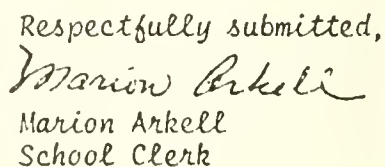 Respectfully submitted,
Marion Arkell
Marion Arkell
School Clerk